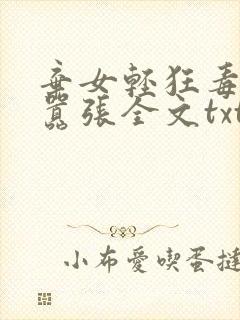 棄女輕狂毒
囂張全文txt
小布愛吃蛋撻